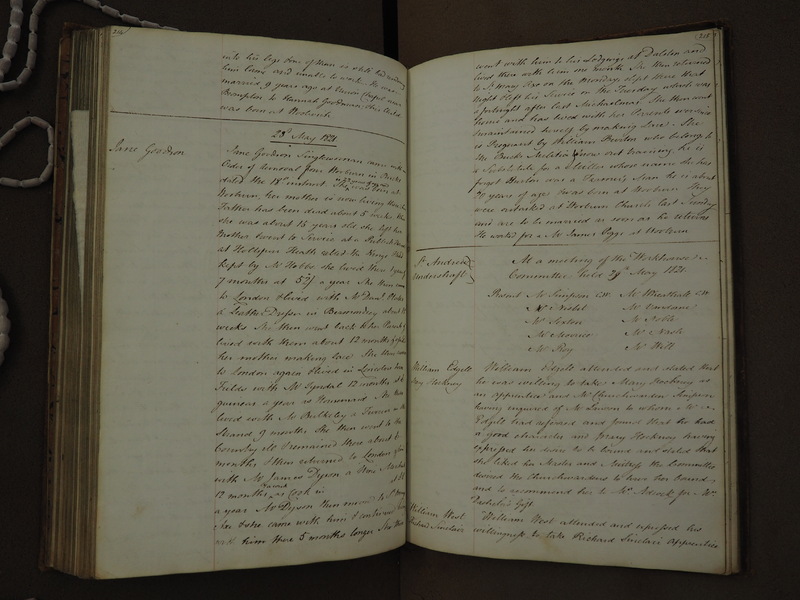 214
into his legs one of them is still bad
him lame and unable to work He was
married 9 years ago at Union Chapel near
Brompton to Hannah Goodman this Child
was born at Woolwich
23d May 1821
Jane Goodson
Jane Goodson Singlewoman came with an
Order of removal from Woburn in Bucks
dated the 18th instant She was born at
Wooburn, her mother is now living there her
Father has been dead about 5 weeks When
she was about 15 years old she left her
Mother & went to Service at a Publick House
at Kept by Mr Hobbs she lived there 1 year &
7 months at a year She then came
to London & lived with Mr
a Leather Dresser in Bermondsey about
weeks She then went back to her Parents &
lived with them about 12 months & helped
her mother making lace She then came
to London again & lived in Lincolns Inn
Fields with Mr Tyndal 12 months at 8
guineas a year as Housemaid She then
lived with Mr Bulkeley a in the
Strand 9 months She then went to the
Country & remained there about 6
months & then returned to London & lived
with Mr James Dyson a
12 months as Cook in at
a year Mr Dyson then moved to St Mary
Axe & she came with him & continued
with him there 5 months longer She then
215
went with him to his Lodgings at Dalston and
lived there with him one month She then returned
to St Mary Axe on the Monday slept there that
night & left his Service on the Tuesday which was
a fortnight after last Michaelmas She then went
home and has lived with her Parents
maintained herself by making Lace She
is Pregnant by William Burton who belongs to
the Bucks Militia now out training he is
a Substitute for a whose name she has
forgot Burton was a Man he is about
20 years of age & was born at Wooburn They
were outasked at Wooburn Church last Sunday
and are to be married as soon as he returns
He worked for a Mr James Pegge at Wooburn
St Andrew
Undershaft
At a meeting of the Workhouse
Committee held 29th May 1821
Present Mr Simpson CW Mr Wheatall CW
Mr Nisbet Mr
Mr Sexton Mr Noble
Mr Morris Mr Nash
Mr Roy Mr Hill
William Edgell
Mary Hockney
William Edgell attended and stated that
he was willing to take Mary Hockney as
an apprentice and Mr Churchwarden Simpson
having enquired of Mr Lawson to whom Mr
Edgell had referred and found that he had
a good character and Mary Hockney having
expressed her desire to be bound and stated that
she liked her Master and Mistress the Committee
desired the Churchwardens to have her bound
and to recommend her to Mr Adcock for Mr
Gift
William West
Richard Sinclair
William West attended and expressed his
willingness to take Richard Sinclair Apprentice